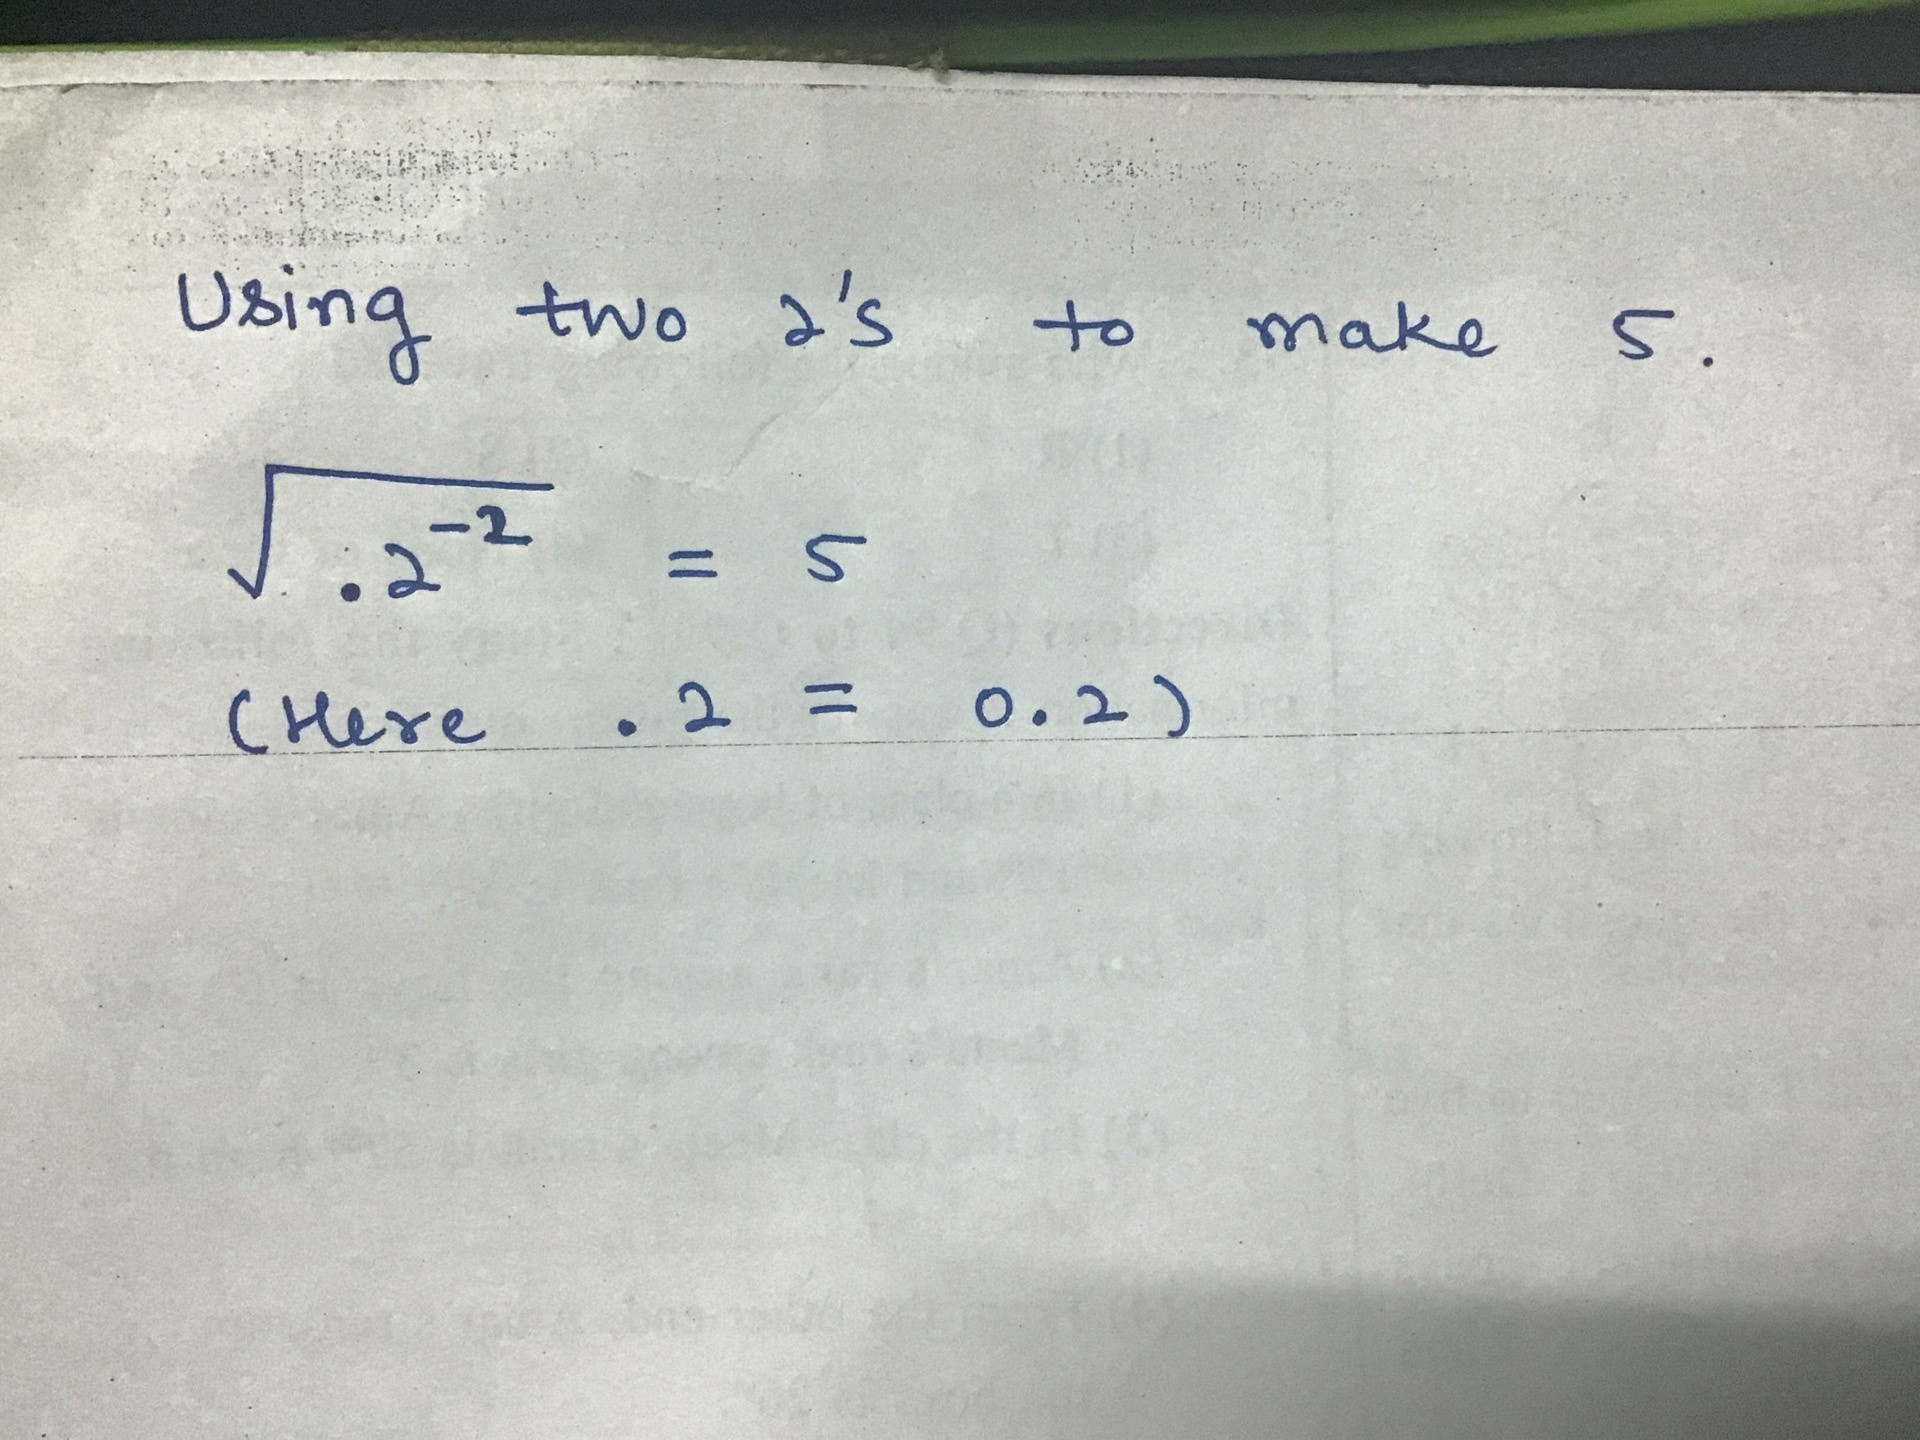 Using two 2's to make 5.
√.2⁻² = 5
(Here .2 = 0.2)